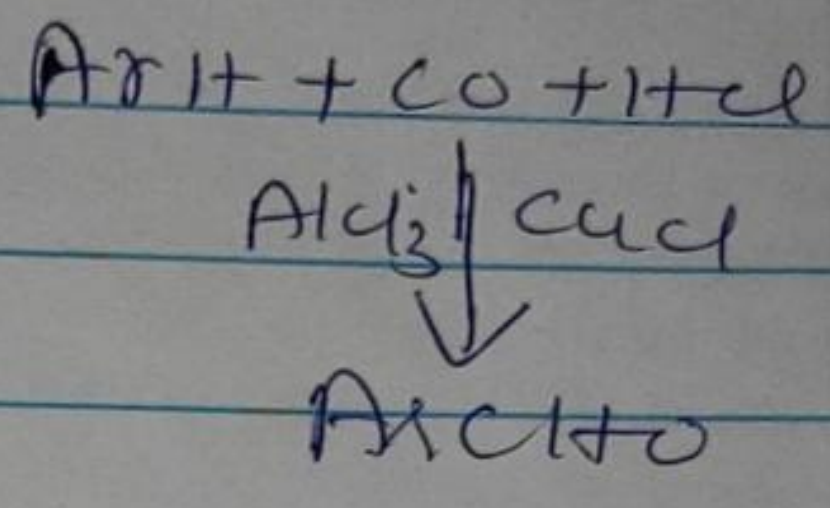 ArH + CO + HCl
AlCl3 CuCl
ArCHO